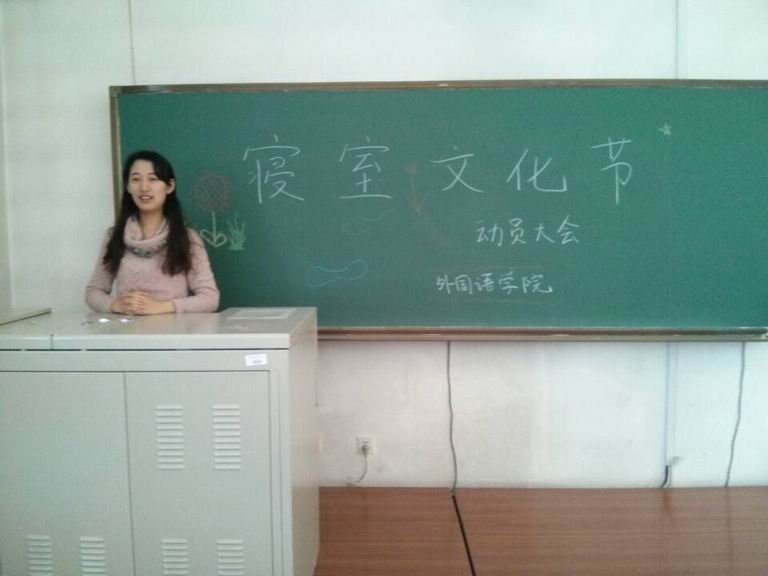 寝室文化节
动员大会
外国语学院